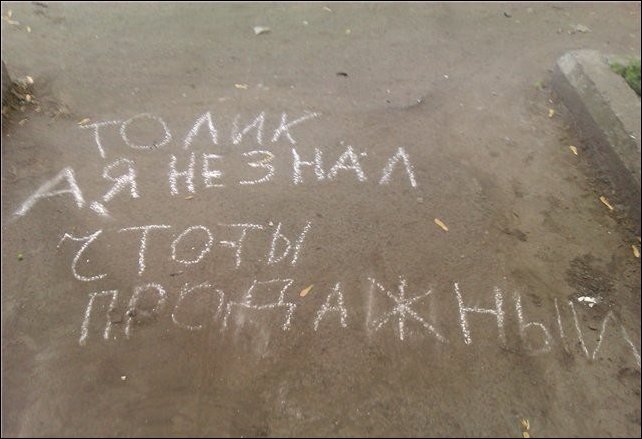 ТОЛИК
А Я НЕ ЗНАЛ
ЧТО ТЫ
ПРОДАЖНЫЙ